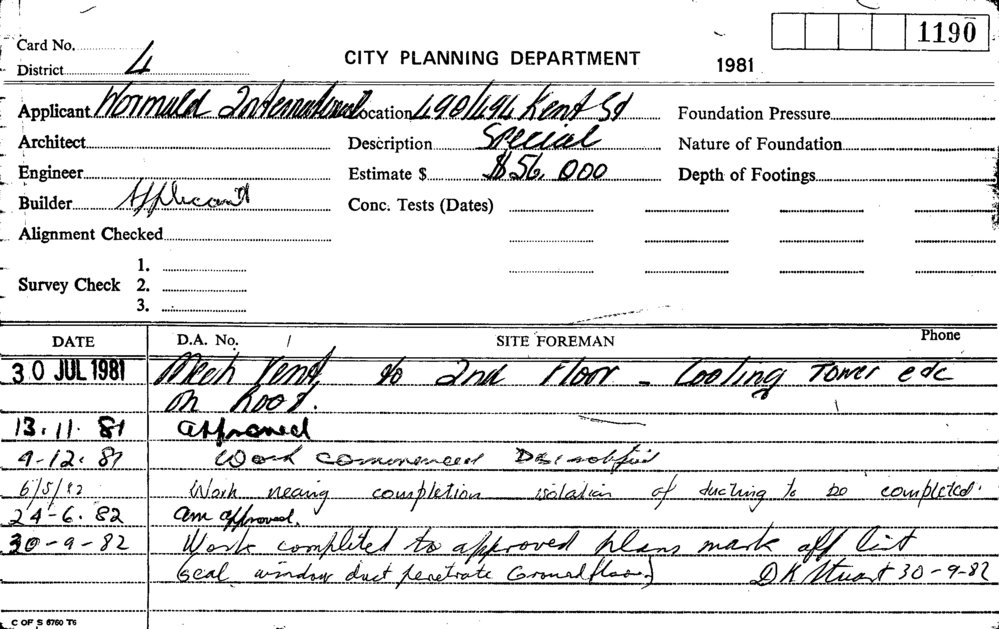 1190
Card No. 4
District
CITY PLANNING DEPARTMENT
1981
Applicant Wormald International
Location 490/494 Kent St
Foundation Pressure
Architect
Description Special
Nature of Foundation
Engineer
Estimate $ $56,000
Depth of Footings
Builder Applicant
Conc. Tests (Dates)
Alignment Checked
Survey Check
1.
2.
3.
DATE D.A. No. SITE FOREMAN Phone
30 JUL 1981 Mech Vent. to 2nd Floor - Cooling Tower etc
on Roof.
13.11.81 approved
9-12.81 Work commenced DBI notified
6/5/82 Work nearing completion isolation of ducting to be completed.
24-6.82 am approved.
30-9-82 Work completed to approved plans mark off list
(seal window duct penetrate Ground floor.) D K Stuart 30-9-82
C OF S 6760 T6